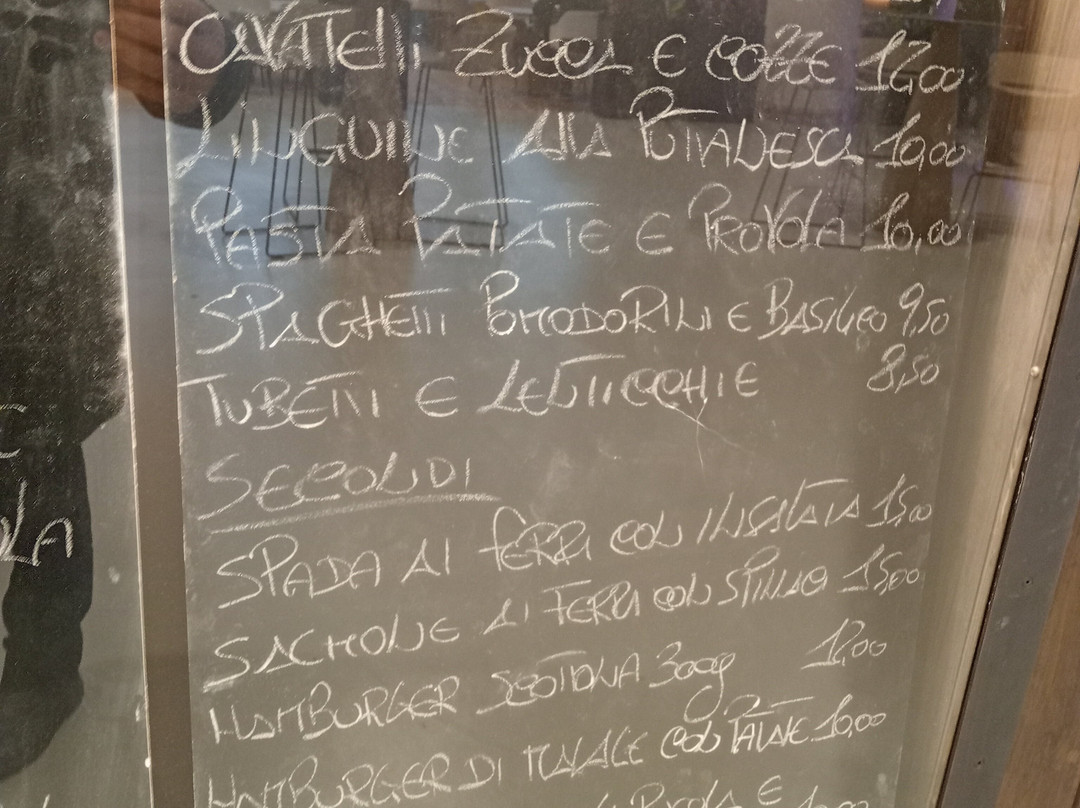 CAVATELLI ZUCCA E COZZE 12,00
LINGUINE ALLA PUTTANESCA 10,00
PASTA PATATE E PROVOLA 10,00
SPAGHETTI POMODORINI E BASILICO 9,50
TUBETTI E LENTICCHIE 8,50
SECONDI
SPADA AI FERRI CON INSALATA 15,00
SALMONE AI FERRI CON 15,00
HAMBURGER SCOTTONA 300g 12,00
HAMBURGER DI MAIALE CON PATATE 10,00